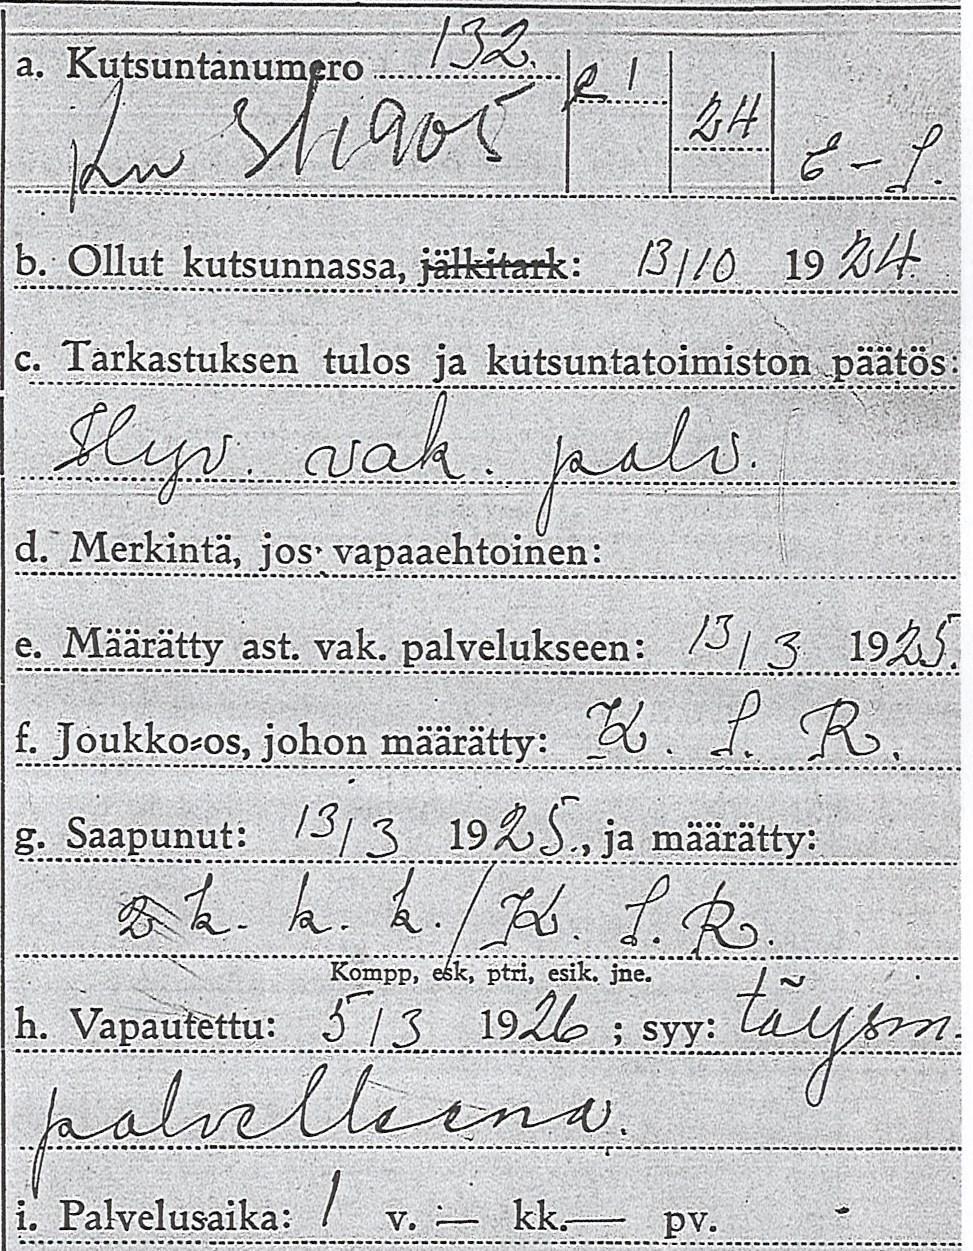 a. Kutsuntanumero 132. e 1 24 E – L.
b. Ollut kutsunnassa, jälkitark: 13/10 1924
c. Tarkastuksen tulos ja kutsuntatoimiston päätös:
Hyv. vak. palv.
d. Merkintä, jos vapaaehtoinen:
e. Määrätty ast. vak. palvelukseen: 13/3 1925.
f. Joukko-os, johon määrätty: K. L. R.
g. Saapunut: 13/3 1925., ja määrätty:
2 k. k. k./K. L. R.
Kompp, esk, ptri, esik. jne.
h. Vapautettu: 5/3 1926 ; syy: täysin
palvelleena.
i. Palvelusaika: 1 v. — kk. — pv.